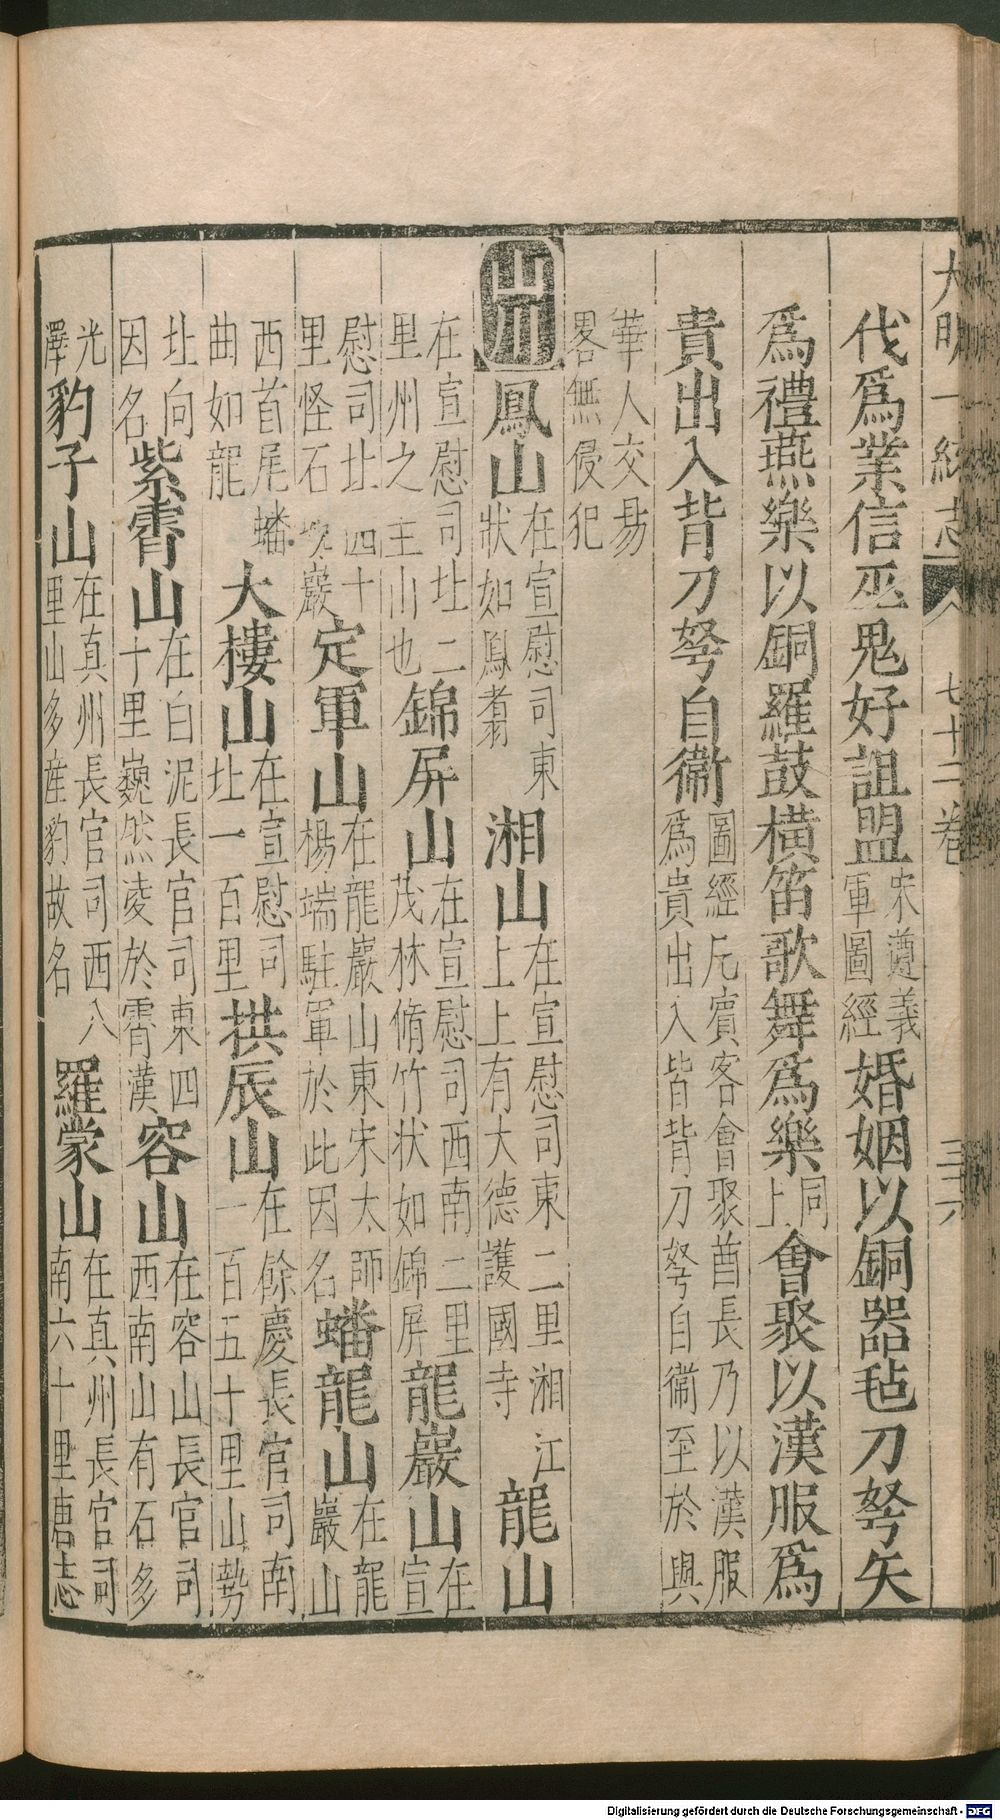 大明一統志 七十二卷 三十六
代爲業信巫鬼好詛盟宋遵義軍圖經婚姻以銅器毡刀弩矢
爲禮燕樂以銅羅鼓橫笛歌舞爲樂同上會聚以漢服爲
貴出入背刀弩自衞圖經凡賓客會聚酋長乃以漢服爲貴出入皆背刀弩自衞至於與
華人交易畧無侵犯
山川鳳山在宣慰司東狀如鳳翥湘山在宣慰司東二里湘江上上有大德護國寺龍山
在宣慰司北二里州之主山也錦屏山在宣慰司西南二里茂林脩竹状如錦屏龍巖山在宣
慰司北四十里怪石巉巖定軍山在龍巖山東宋太師楊端駐軍於此因名蟠龍山在龍巖山
西首尾蟠曲如龍大樓山在宣慰司北一百里拱辰山在餘慶長官司南一百五十里山勢
北向因名紫霄山在白泥長官司東四十里巍然凌於霄漢容山在容山長官司西南山有石多
光澤豹子山在真州長官司西八里山多産豹故名羅蒙山在真州長官司南六十里唐志
Digitalisierung gefördert durch die Deutsche Forschungsgemeinschaft - DFG